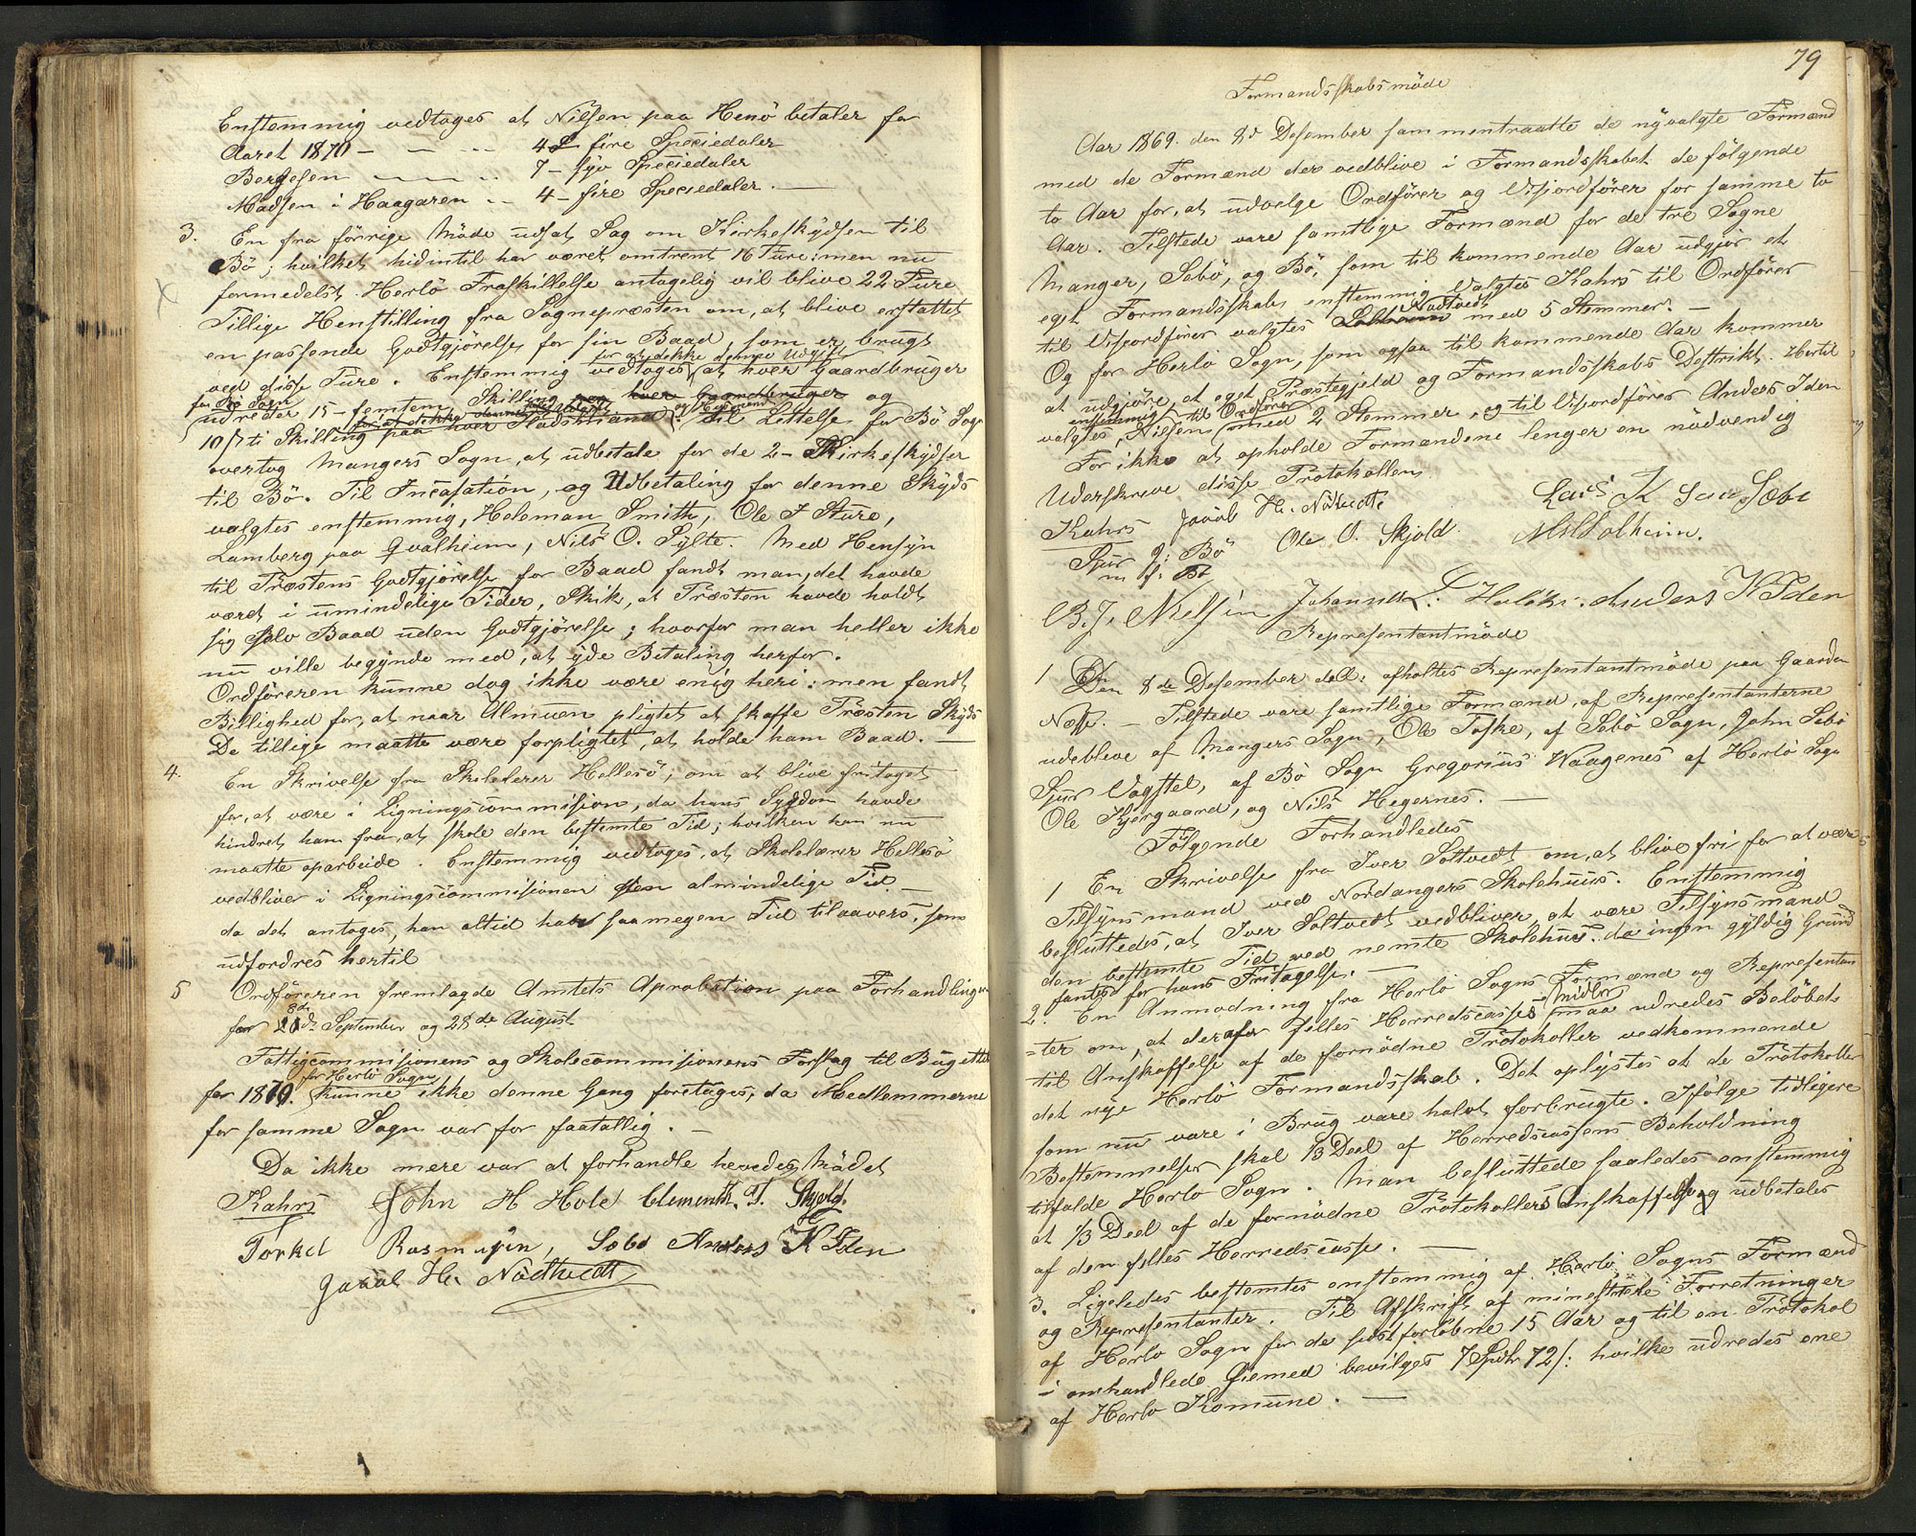 Enstemmig vedtoges at Nilsen paa Henö betaler for
Aaret 1870 — — — 4 fire Speciedaler
Bergesen — — — 7 – syv Speciedaler
Madsen i Haagaren — 4 – fire Speciedaler. —
3. En fra förrige Möde udsat Sag om Kirkeskydsen til
Bö; hvilket hidintil har været omtrent 16 Ture: men nu
formedelst Herlö Fraskillelse antagelig vil blive 22 Ture
Tillige Henstilling fra Sognepræsten om, at blive erstattet
en passende Godtgjörelse for sin Baad, som er brugt
for at dekke denne Udgift
ved disse Ture. Enstemmig vedtoges, at hver Gaardbruger
for Bö Sogn
udreder 15 – femten Skilling og hver Gaardbruger og
10/ ti Skilling paa hver Stadsmand. Til Lettelse for Bö Sogn
overtog Mangers Sogn, at udbetale for de 2 – Kirkeskydser
til Bö. Til Incasation, og Udbetaling for denne Skyds
valgtes enstemmig, Heleman Smith, Ole J Sture,
Lamberg paa Gvalheim, Nils O. Sylte. Med Hensyn
til Præstens Godtgjörelse for Baad fandt man, det havde
været i umindelige Tider, Skik, at Præsten havde holdt
sig selv Baad uden Godtgjörelse; hvorfor man heller ikke
nu ville begynde med, at yde Betaling herfor.
Ordföreren kunne dog ikke være enig heri: men fandt
Billighed for, at naar Almuen pligtet at skaffe Præsten Skyds
De tillige maatte være forpligtet, at holde ham Baad. —
4. En Skrivelse fra Skolelærer Hellesö; om at blive fritaget
for, at være i Ligningscommission, da hans Sygdom havde
hindret ham fra, at skole den bestemte Tid; hvilken han nu
maatte oparbeide. Enstemmig vedtoges, at Skolelærer Hellesö
vedbliver i Ligningscommisionen den almindelige Tid —
da det antoges, han altid har saamegen Tid tilaavers, som
udfordres hertil
5 Ordföreren fremlagde Amtets Aprobation paa Forhandlinger
8de
for September og 28de August
Fattigcommisionens og Skolecommisionens Forslag til Bugetter
for Herlö Sogn
for 1870. kunne ikke denne Gang foretages, da Medlemmerne
for samme Sogn var for faatallig. —
Da ikke mere var at forhandle hevedes Mödet
Kahrs John H Hole Clementh. T. Skjold.
Torkel Rasmusen, Sebö Anders K Iden
Jacob Hs. Nödtvedt
79
Formandsskabsmöde
Aar 1869. den 8d Desember sammentraatte de nyvalgte Formænd
med de Formænd der vedblive i Formandsskabet de fölgende
to Aar for, at udvelge Ordförer og Visordförer for samme to
Aar. Tilstede vare samtlige Formænd for de tre Sogne
Manger, Sebö, og Bö, som til kommende Aar udgjör et
eget Formandsskab, enstemmig valgtes Kahrs til Ordförer
Nodtvedt
til Visordförer valgtes med 5 Stemmer. —
Og for Herlö Sogn, som ogsaa til kommende Aar kommer
at udgjöre, et eget Præstegjeld og Formandsskabs Destrikt. Hertil
enstemmig til Ordförer
valgtes, Nilsen med 2 Stemmer, og til Visordförer Anders Iden
For ikke at opholde Formændene lenger en nödvendig
Uderskreve disse Protokollen
Kahrs Jacob Hs. Nödtvedt Lars K Sebö
Sjur J: Bö Ole O. Skjold
m. f. P.
B. J. Nielsen Johannes Anders K Iden
Representantmöde
1 Den 8de Desember d.A: afholtes Representantmöde paa Gaarden
Næse. — Tilstede vare samtlige Formænd, af Representanterne
udebleve af Mangers Sogn, Ole Toske, af Sebö Sogn, John Sebö
Sjur Vagstel, af Bö Sogn Gregorius Waagenes af Herlö Sogn
Ole Kjergaard, og Nils Hegernes. —
Fölgende Forhandledes
1 En Skrivelse fra Iver Soltvedt om, at blive fri for at være
Tilsynsmand ved Nordangers Skolehuus. Enstemmig
besluttedes, at Iver Soltvedt vedbliver, at være Tilsynsmand
den bestemte Tid ved nemte Skolehuus. da ingen gyldig Grund
fantes for hans Fritagelse. —
2. En Anmodning fra Herlö Sogns Formænd og Represen­tan
midler
=ter om, at deraf felles Herredscasses maa udredes Belöbet
til Anskaffelse af de fornödne Protokoller vedkommende
det nye Herlö Formandsskab. Det oplystes at de Protokoller
som nu vare i Brug vare halvt forbrugte. Ifölge tidligere
Bestemmelser skal 1/3 Deel af Herredscassens Beholdning
tilfalde Herlö Sogn. Man besluttede saaledes enstemmig
at 1/3 Deel af de fornödne Protokollers Anskaffelse udbetales
af den felles Herredscasse. —
3. Ligeledes bestemtes enstemmig af Herlö Sogns Formænd
og Representanter. Til Afskrift af minestriele Forretninger
af Herlö Sogn for de sidst forlöbne 15 Aar og til en Protokol
i omhandlede Öiemed bevilges 7 Spdr 72/: hvilke udredes ene
af Herlö Komune. —